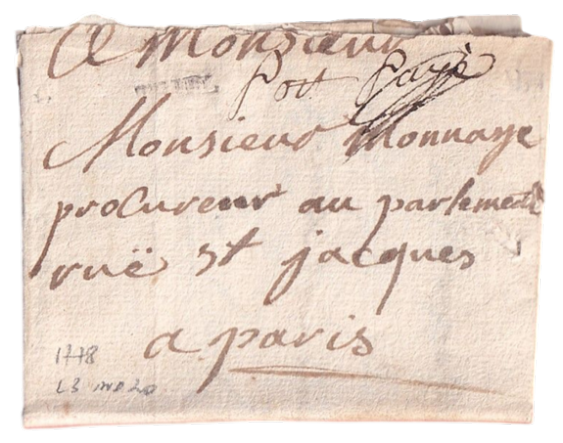 A Monsieur
Port Payé
Monsieur Monnaye
procureur au parlement
ruë st jacques
a paris
1778